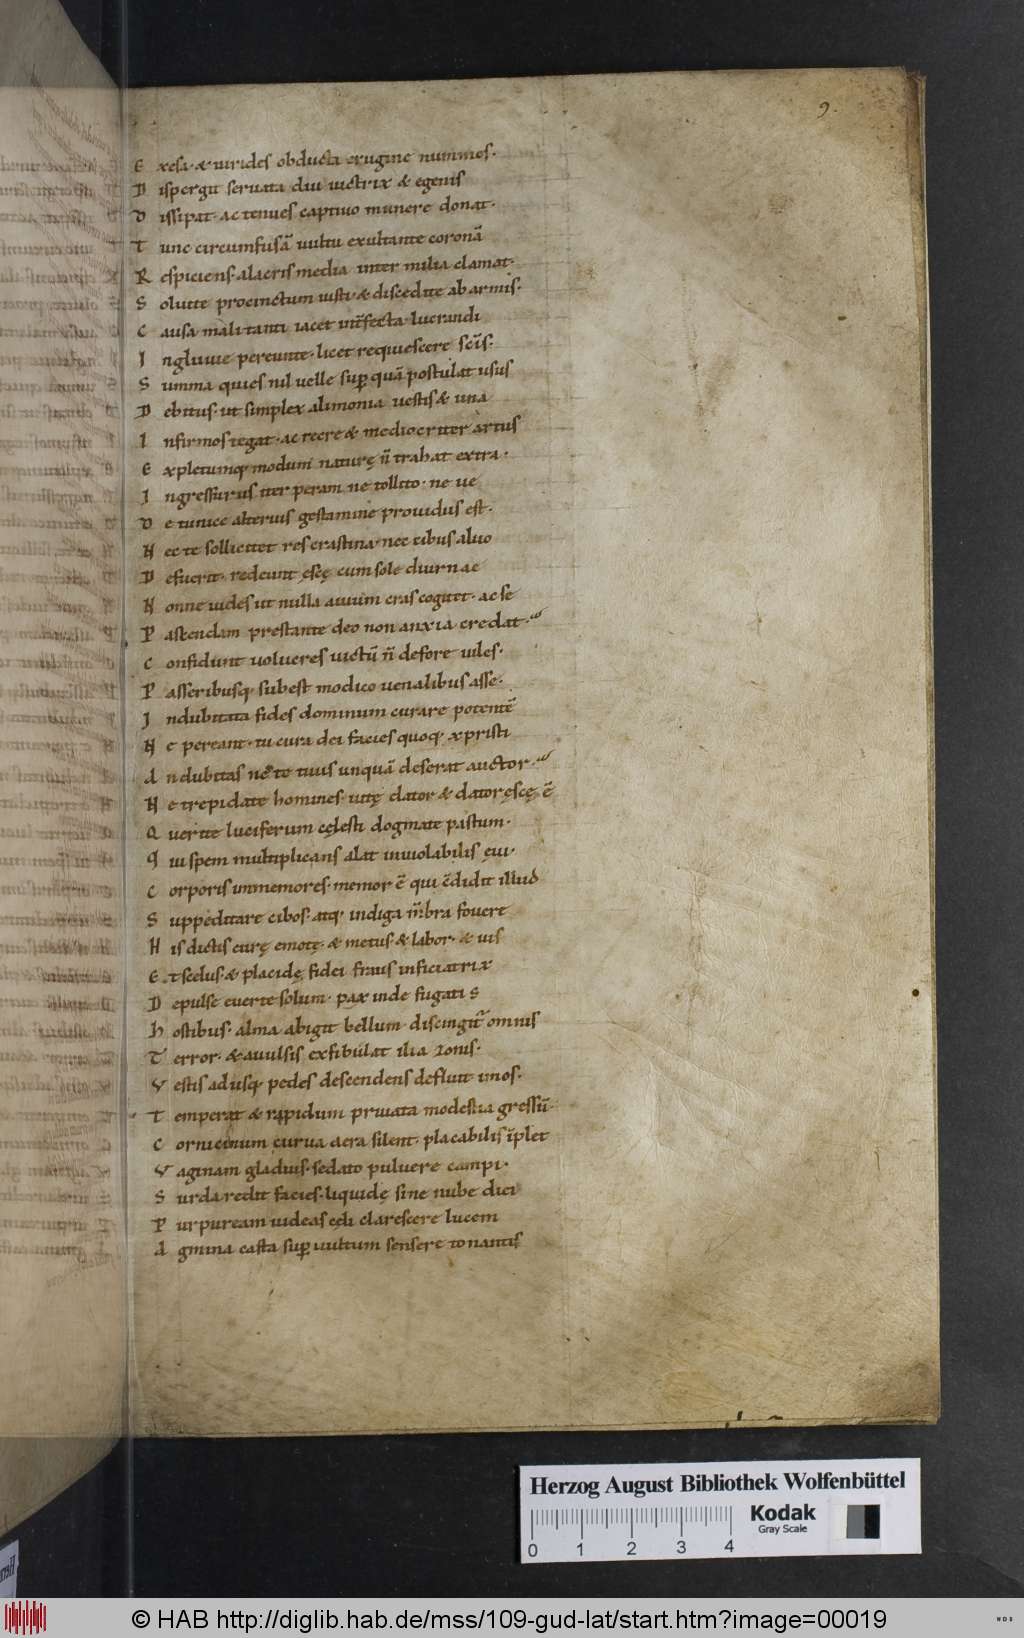 9.
E xesa · & uirides obducta erugine nummos ·
D ispergit seruata diu uictrix & egenis
D issipat · ac tenues captiuo munere donat ·
T unc circumfusā uultu exultante coronā
R espiciens · alacris media inter milia clamat ·
S oluite procinctum iusti · & discedite ab armis ·
C ausa mali tanti iacet int̄fecta · lucrandi
I ngluuie pereunte · licet requiescere sc̄is ·
S umma quies nil uelle sup quā postulat usus
D ebitus · ut simplex alimonia uestis & una
I nfirmos tegat · ac recre& mediocriter artus
E xpletumq; modum naturę n̄ trahat extra ·
I ngressurus iter peram ne tollito · ne ue
D e tunice alterius gestamine prouidus est ·
N ec te sollicitet res crastina · nec cibus aluo
D efuerit · redeunt ęscę cum sole diurnae
N onne uides ut nulla auium cras cogitet · ac se
P ascendam prestante deo non anxia credat ·
C onfidunt uolucres uictū n̄ defore uiles ·
P asseribusq; subest modico uenalibus asse ·
I ndubitata fides dominum curare potentē
N e pereant · tu cura dei facies quoq; xpristi
A n dubitas ne te tuus unquā deserat auctor ·
N e trepidate homines · uitę dator & dator ęscę ē
Q uerite luciferum cęlesti dogmate pastum ·
Q ui spem multiplicans alat inuiolabilis ęui ·
C orporis inmemores · memor ē qui c̄didit illud
S uppeditare cibos · atq; indiga m̄bra fouere
H is dictis curę emotę · & metus · & labor · & uis
E t scelus · & placidę fidei fraus inficiatrix
D epulse euerte solum · pax inde fugatis
H ostibus · alma abigit bellum · discingit omnis
T error · & auulsis exfibulat ilia zonis ·
V estis adusq; pedes descendens defluit imos ·
T emperat & rapidum priuata modestia gressū ·
C ornicinum curua aera silent · placabilis īplet
V aginam gladius · sedato puluere campi ·
S urda redit facies · liquidę sine nube diei
P urpuream uideas celi clarescere lucem
A gmina casta sup uultum sensere tonantis
Herzog August Bibliothek Wolfenbüttel
0 1 2 3 4
Kodak
Gray Scale
© HAB http://diglib.hab.de/mss/109-gud-lat/start.htm?image=00019